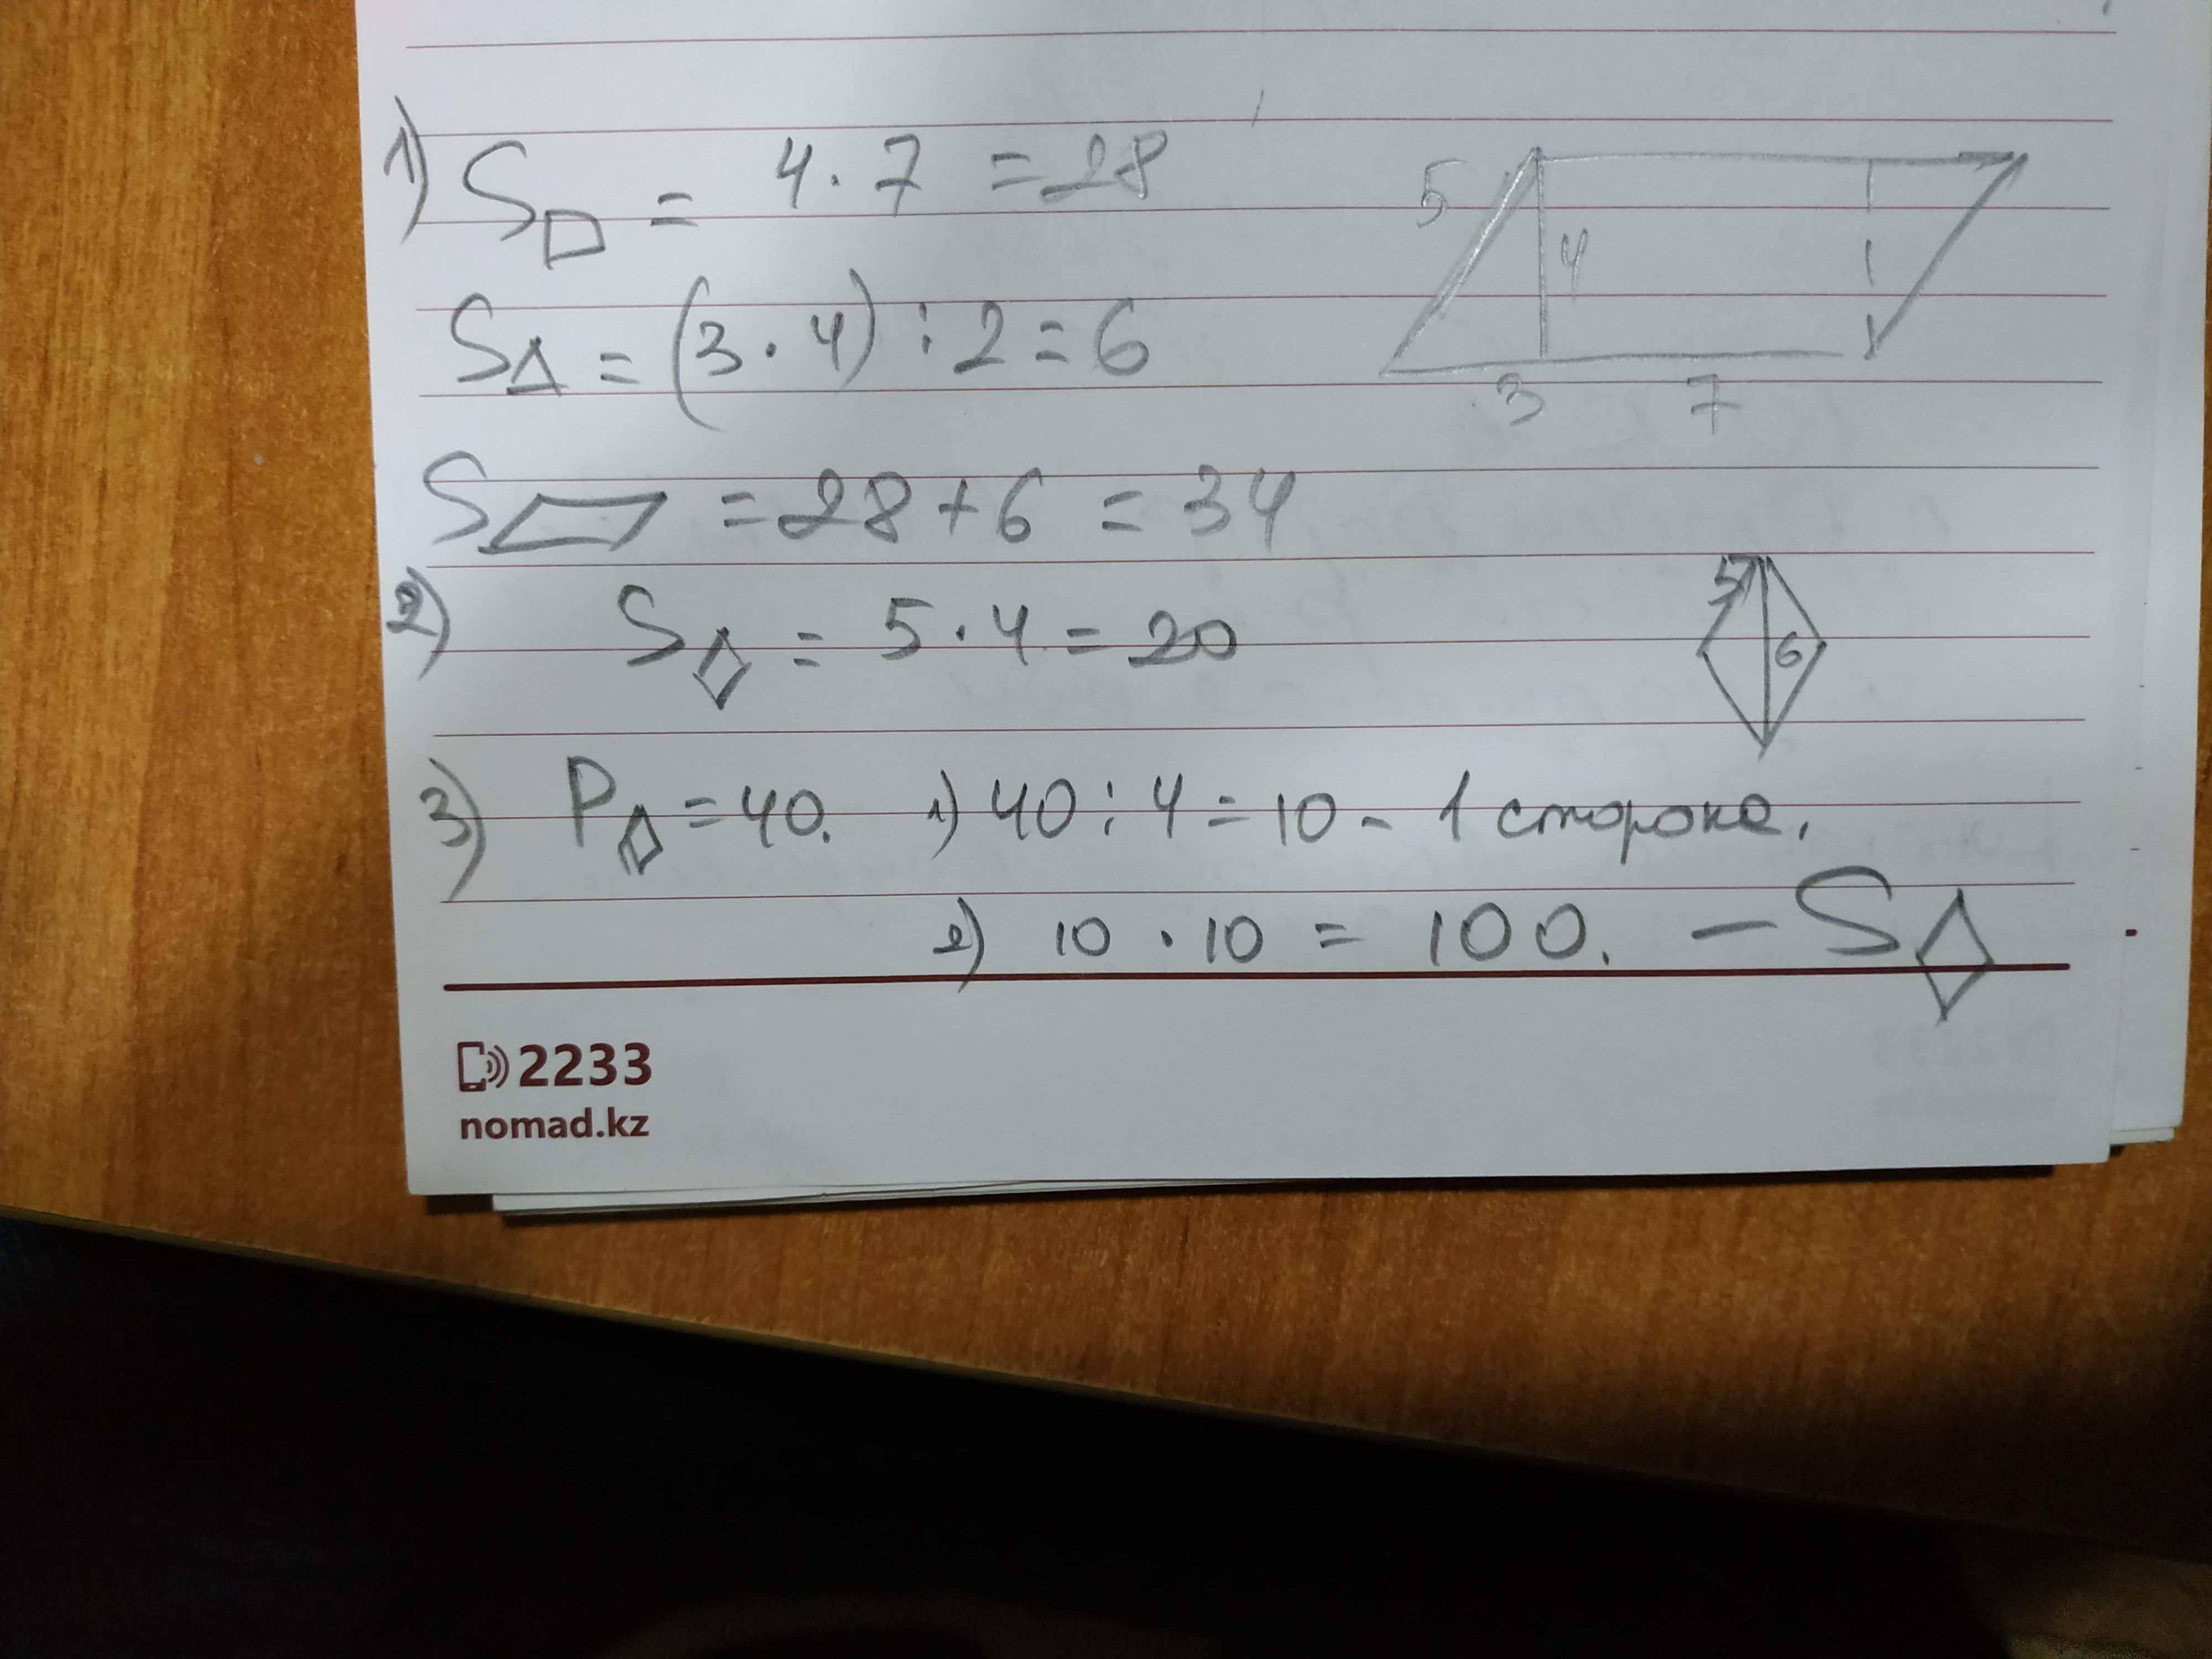 1) S▱ = 4 · 7 = 28
5
4
3 7
S△ = (3 · 4) : 2 = 6
S▱ = 28 + 6 = 34
2) S◊ = 5 · 4 = 20
5
6
3) P◊ = 40. 1) 40 : 4 = 10 - 1 сторона.
2) 10 · 10 = 100. — S◊
2233
nomad.kz